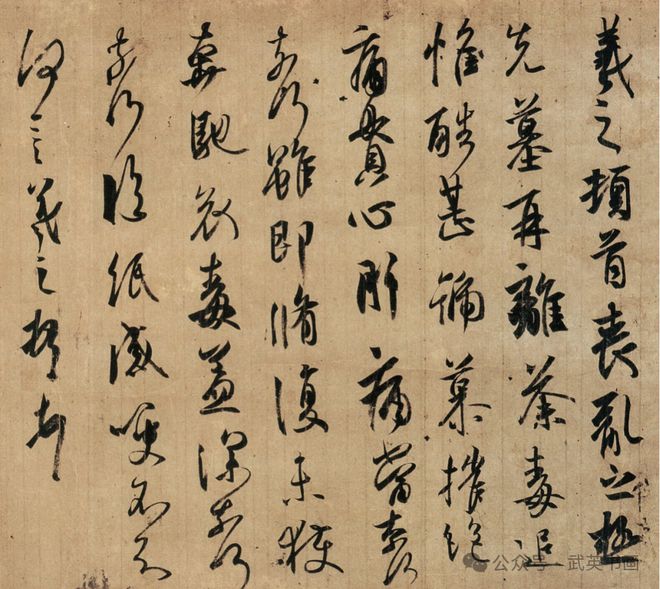 羲之頓首喪亂之極
先墓再離荼毒追
惟酷甚號慕摧絕
痛貫心肝痛當柰何
柰何雖即脩復未獲
奔馳哀毒益深柰何
柰何臨紙感哽不知
何言羲之頓首頓首
公众号 · 武英书画